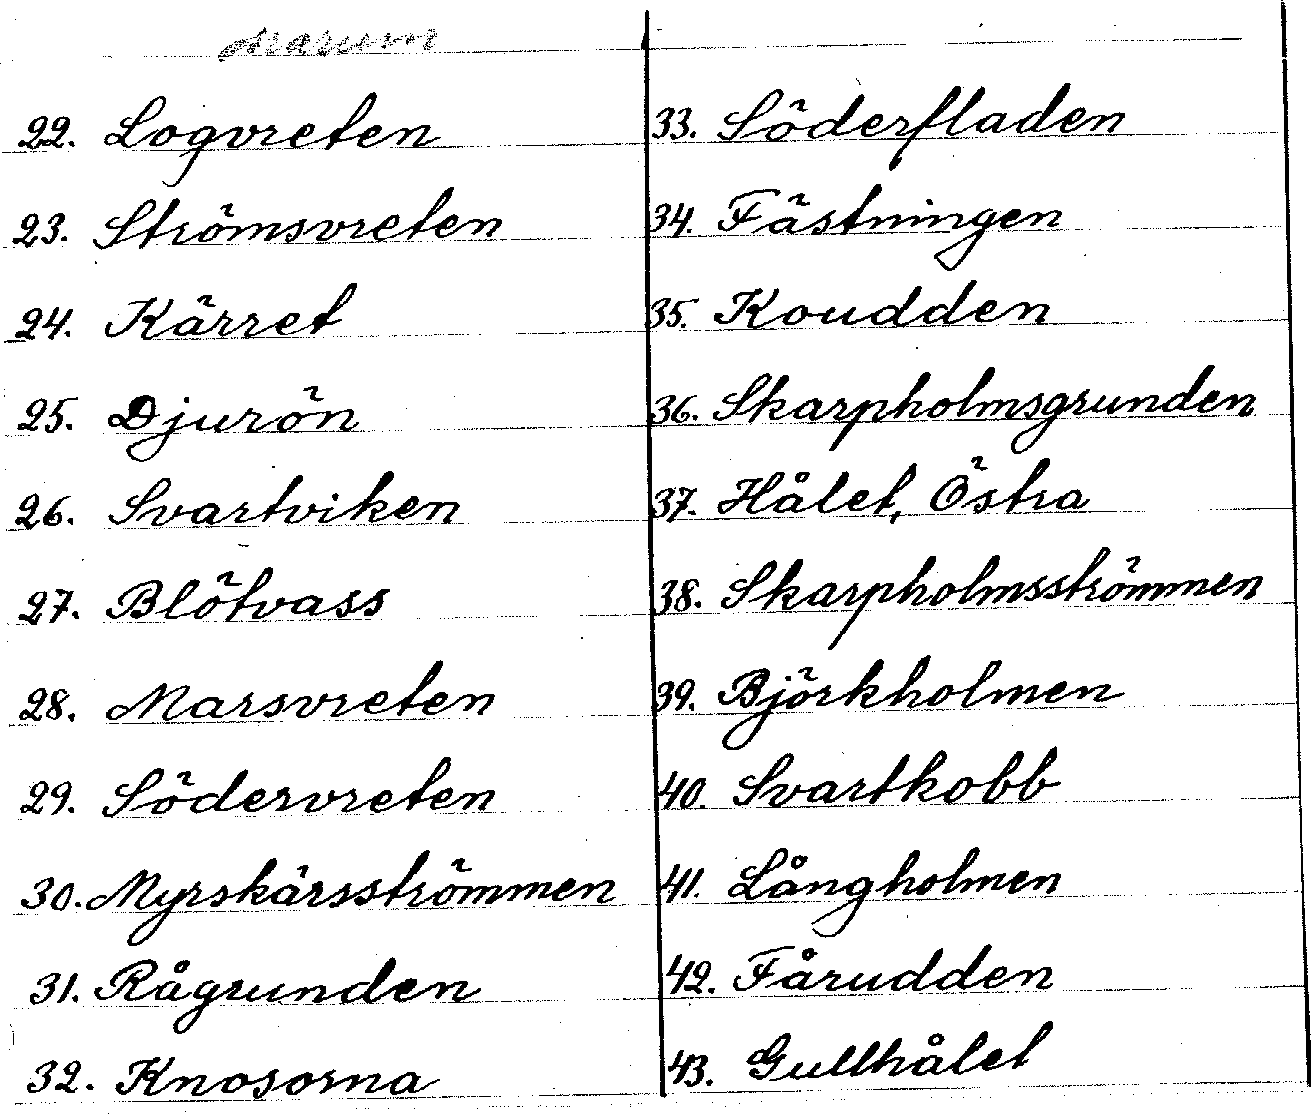 Marum
22. Logvreten
23. Strömsvreten
24. Kärret
25. Djurön
26. Svartviken
27. Blötvass
28. Marsvreten
29. Södervreten
30. Myrskärsströmmen
31. Rågrunden
32. Knosorna
33. Söderfladen
34. Fästningen
35. Koudden
36. Skarpholmsgrunden
37. Hålet, Östra
38. Skarpholmsströmmen
39. Björkholmen
40. Svartkobb
41. Långholmen
42. Fårudden
43. Gullhålet